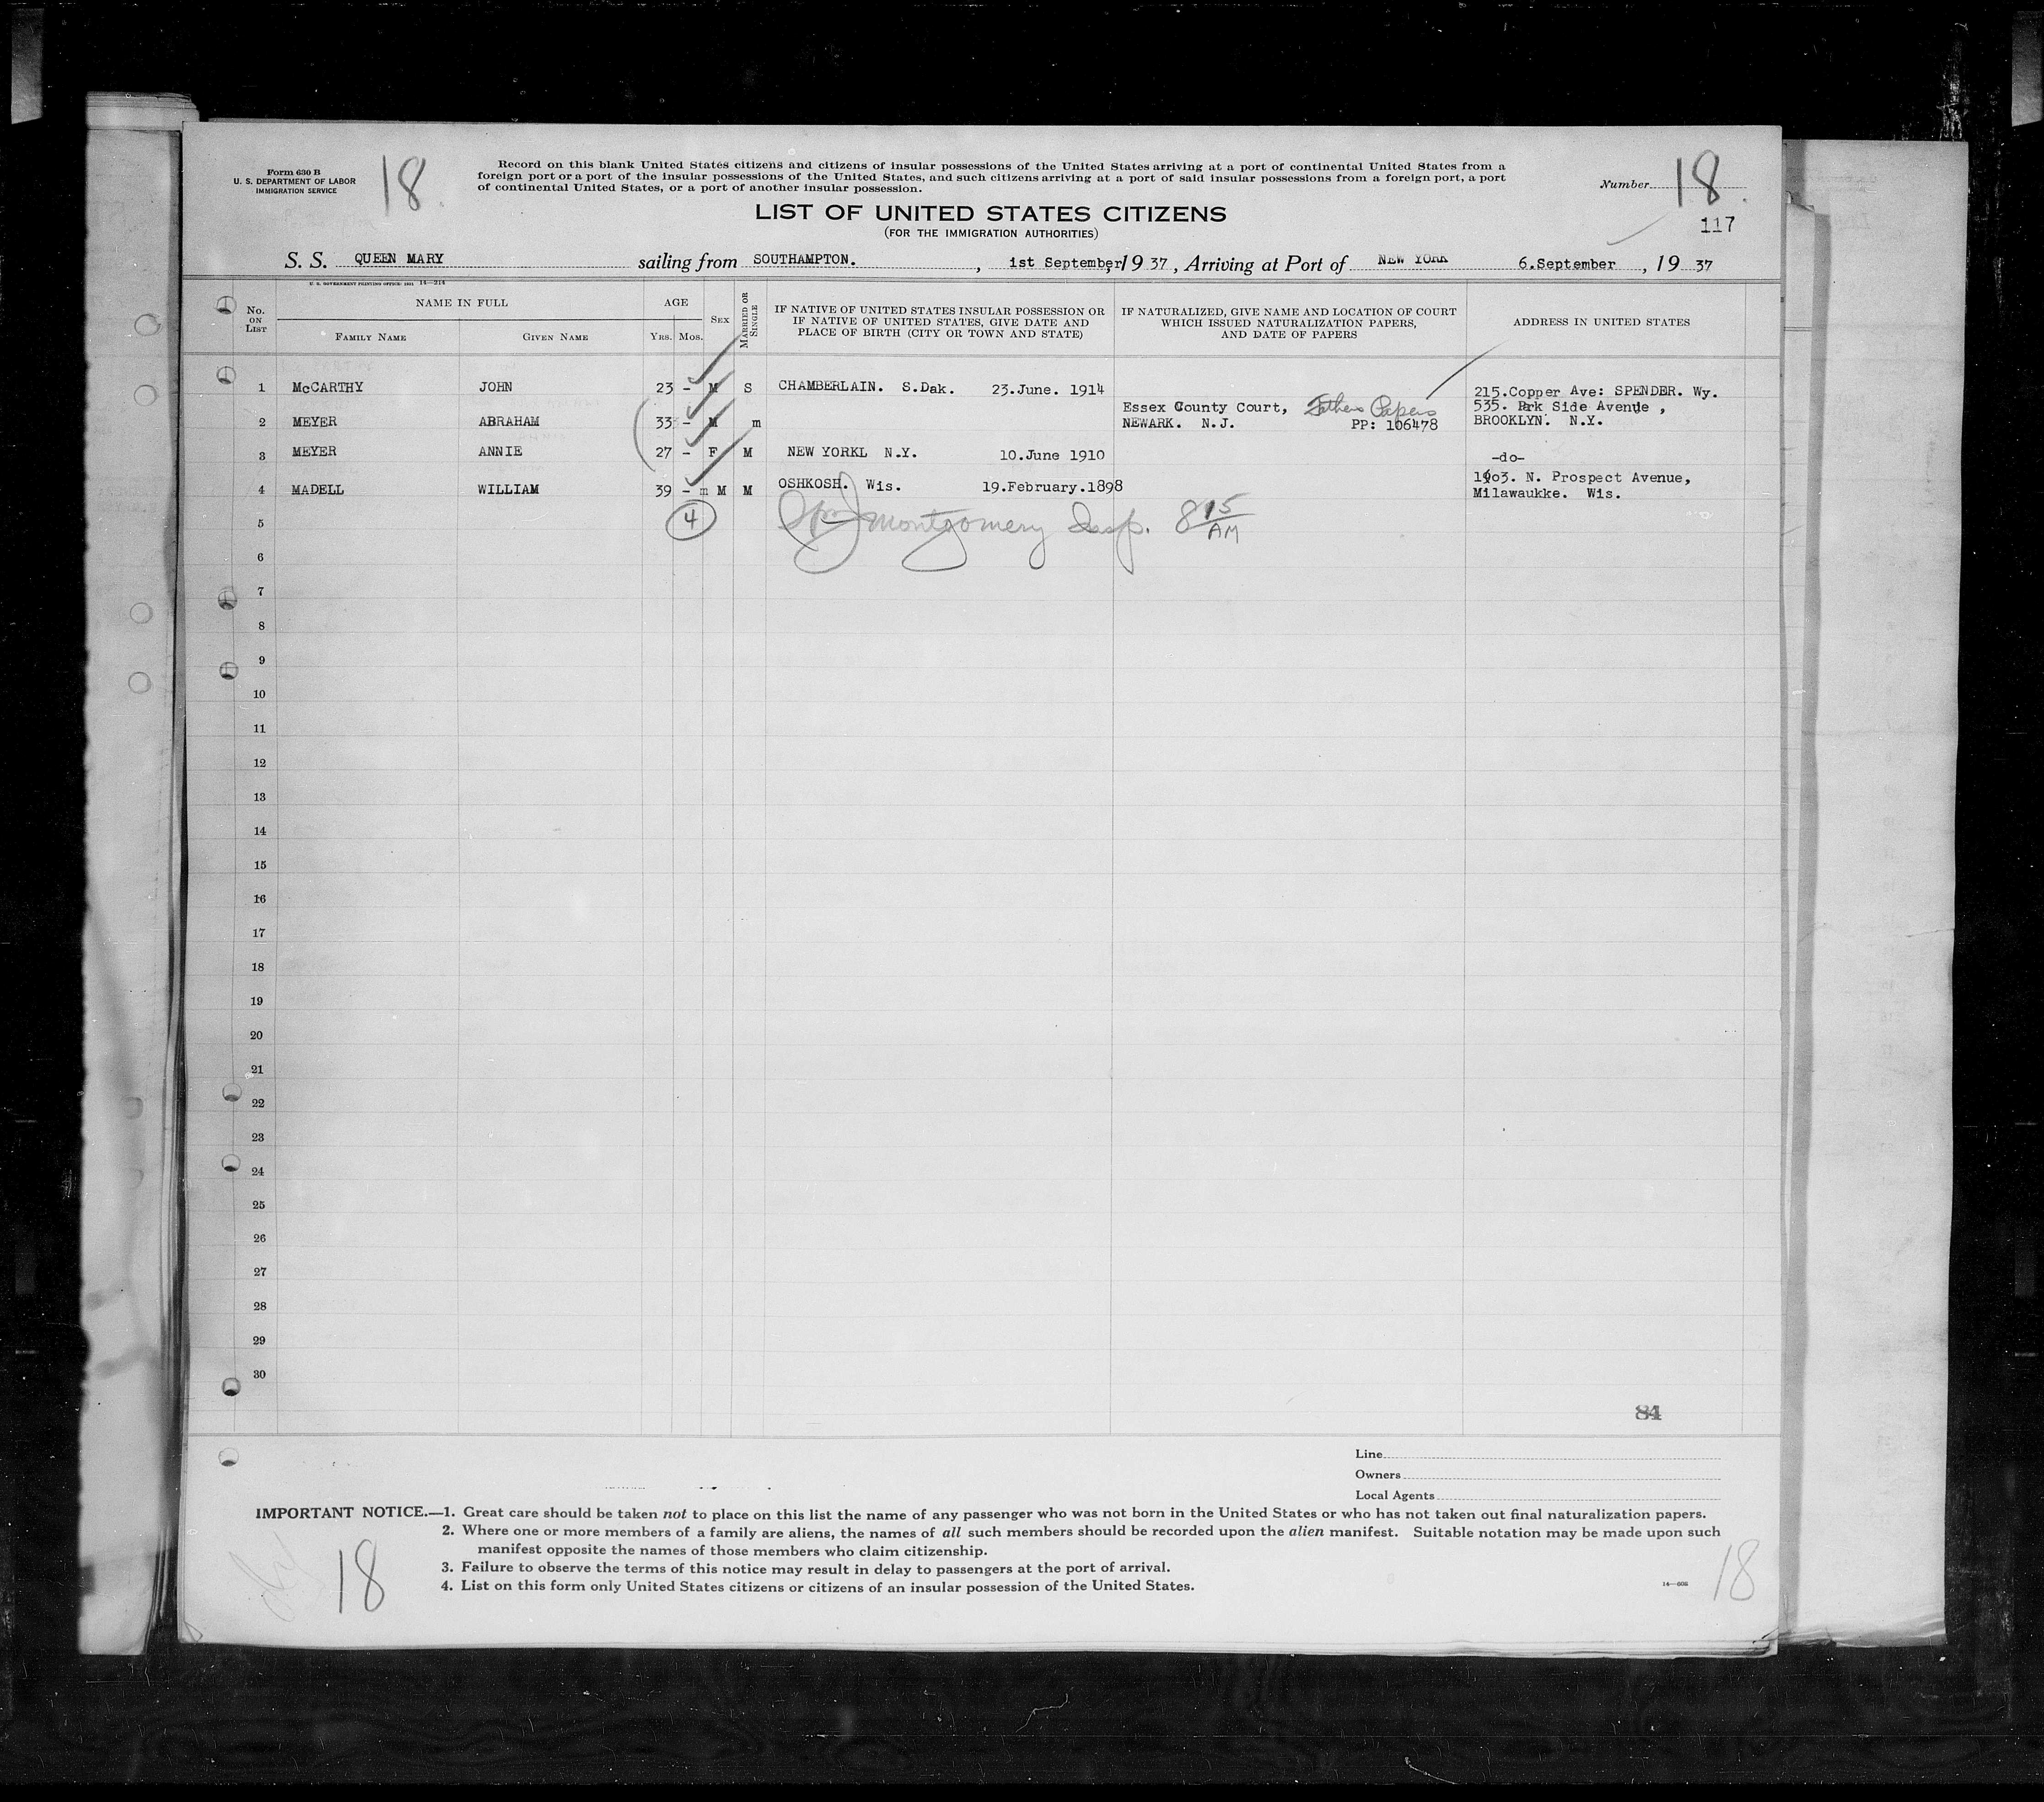 Form 630 B
U. S. DEPARTMENT OF LABOR
IMMIGRATION SERVICE
18.
Record on this blank United States citizens and citizens of insular possessions of the United States arriving at a port of continental United States from a
foreign port or a port of the insular possessions of the United States, and such citizens arriving at a port of said insular possessions from a foreign port, a port
of continental United States, or a port of another insular possession.
Number 18.
117
LIST OF UNITED STATES CITIZENS
(FOR THE IMMIGRATION AUTHORITIES)
S. S. QUEEN MARY sailing from SOUTHAMPTON. , 1st September, 19 37, Arriving at Port of NEW YORK 6.September , 19 37
U. S. GOVERNMENT PRINTING OFFICE: 1931 14—214
No. ON LIST
NAME IN FULL
FAMILY NAME GIVEN NAME
AGE
YRS. MOS.
SEX
MARRIED OR SINGLE
IF NATIVE OF UNITED STATES INSULAR POSSESSION OR
IF NATIVE OF UNITED STATES, GIVE DATE AND
PLACE OF BIRTH (CITY OR TOWN AND STATE)
IF NATURALIZED, GIVE NAME AND LOCATION OF COURT
WHICH ISSUED NATURALIZATION PAPERS,
AND DATE OF PAPERS
ADDRESS IN UNITED STATES
1 McCARTHY JOHN 23 - M S CHAMBERLAIN. S.Dak. 23.June. 1914 215.Copper Ave: SPENDER. Wy.
2 MEYER ABRAHAM 33 - M m Essex County Court, Fathers Papers 535. Park Side Avenue ,
NEWARK. N.J. PP: 106478 BROOKLYN. N.Y.
3 MEYER ANNIE 27 - F M NEW YORKL N.Y. 10.June 1910 -do-
4 MADELL WILLIAM 39 - m M M OSHKOSH. Wis. 19.February.1898 1903. N. Prospect Avenue,
Milawaukke. Wis.
5 4 Montgomery Insp. 8 15 AM
6
7
8
9
10
11
12
13
14
15
16
17
18
19
20
21
22
23
24
25
26
27
28
29
30
84
Line
Owners
Local Agents
IMPORTANT NOTICE.—1. Great care should be taken not to place on this list the name of any passenger who was not born in the United States or who has not taken out final naturalization papers.
2. Where one or more members of a family are aliens, the names of all such members should be recorded upon the alien manifest. Suitable notation may be made upon such
manifest opposite the names of those members who claim citizenship.
3. Failure to observe the terms of this notice may result in delay to passengers at the port of arrival.
4. List on this form only United States citizens or citizens of an insular possession of the United States.
14—608
18
18